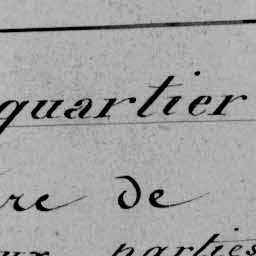 quartier
re de
ux parties